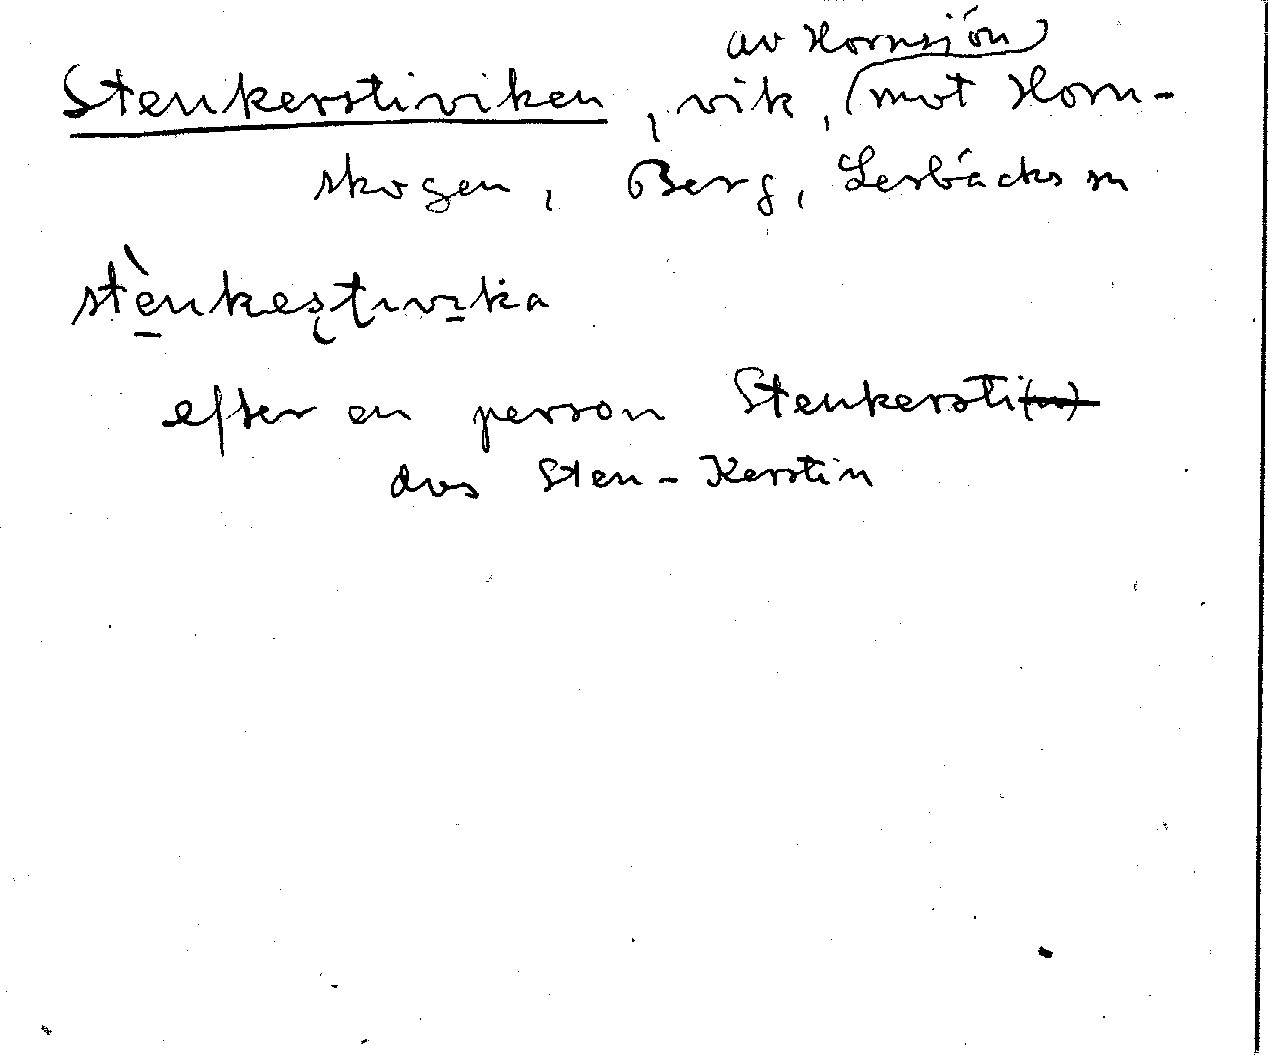 av Hornsjön
Stenkerstiviken, vik, mot Horn-
skogen, Berg, Lerbäcks sn
stènkeʂʈivika
efter en person Stenkersti(n)
dvs Sten-Kerstin